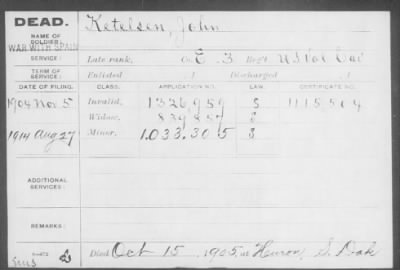 DEAD.
NAME OF SOLDIER: Ketelsen, John
WAR WITH SPAIN
SERVICE: Late rank, Co. E 3 Reg't U.S. Vol Cav
TERM OF SERVICE: Enlisted , 1 Discharged , 1
DATE OF FILING. CLASS. APPLICATION NO. LAW. CERTIFICATE NO.
1904 Nov 5 Invalid, 1326959 S 1115504
Widow, 839857 S
1914 Aug 27 Minor, 1.033.305 S
ADDITIONAL SERVICES:
REMARKS:
Died Oct 15, 1905, at Huron, S. Dak